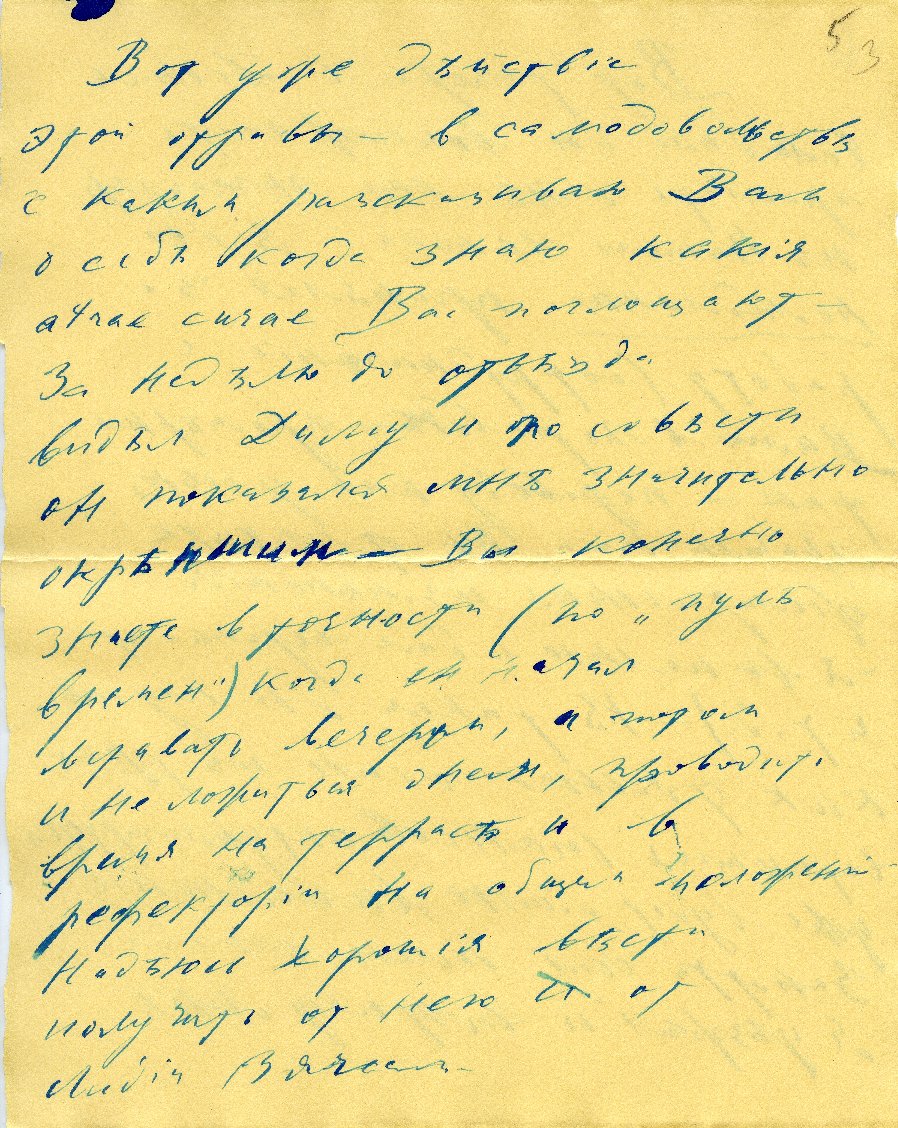 5 3
Вот уже дѣйствіе
этой отравы — в самодовольствѣ
с каким разсказываю Вам
о себѣ когда знаю какія
Вас поглощают —
За недѣлю до отъѣзда
видѣл Диму и по совѣсти
он показался мнѣ значительно
окрѣпшим — Вы конечно
знаете в точности (по „пулѣ
времен") когда он начал
вставать вечером, а потом
и не ложиться днем, проводит.
время на террасѣ и в
рефекторіи на общем положеніи
Надѣюсь хорошія вѣсти
получить от него и от
Лидіи Вячесл.